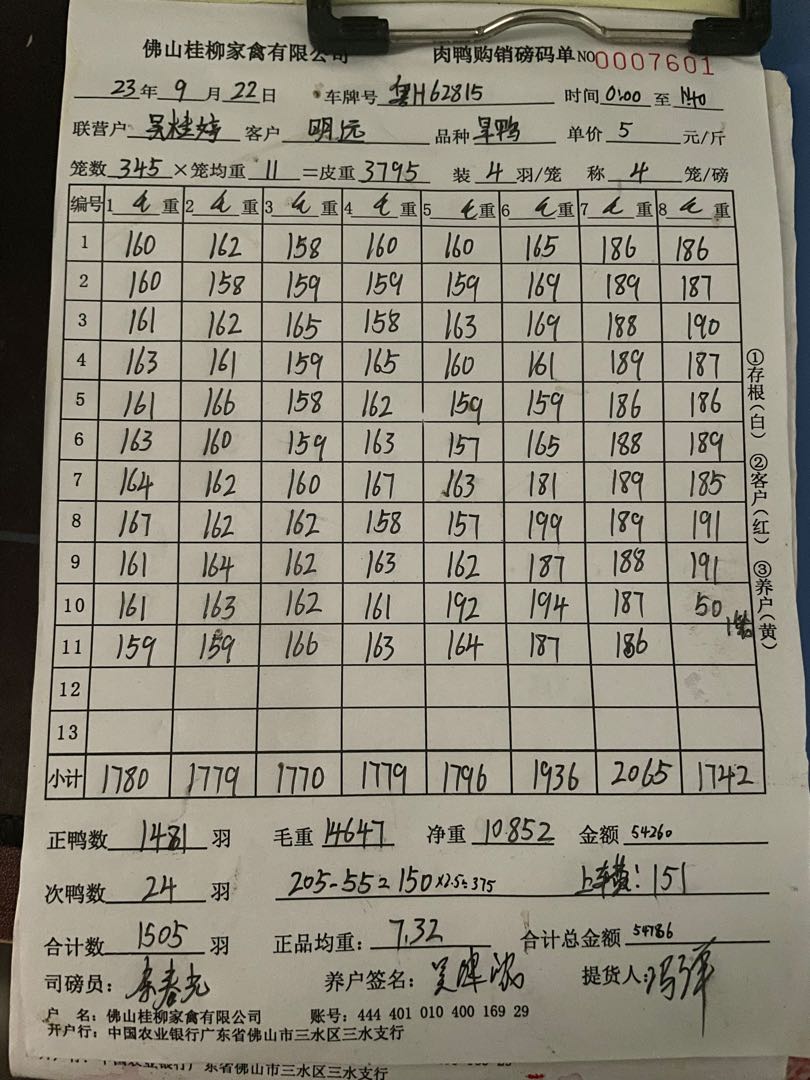 佛山桂柳家禽有限公司 肉鸭购销磅码单 NO 0007601
23年 9月 22日 车牌号 粤H62815 时间 01:00 至 1:40
联营户 吴桂婷 客户 明远 品种 旱鸭 单价 5 元/斤
笼数 345 ×笼均重 11 =皮重 3795 装 4 羽/笼 称 4 笼/磅
编号 1 毛重 2 毛重 3 毛重 4 毛重 5 毛重 6 毛重 7 毛重 8 毛重
1 160 162 158 160 160 165 186 186
2 160 158 159 159 159 169 189 187
3 161 162 165 158 163 169 188 190
4 163 161 159 165 160 161 189 187
5 161 166 158 162 159 159 186 186
6 163 160 159 163 157 165 188 189
7 164 162 160 167 163 181 189 185
8 167 162 162 158 157 199 189 191
9 161 164 162 163 162 187 188 191
10 161 163 162 161 192 194 187 50
11 159 159 166 163 164 187 186
12
13
小计 1780 1779 1770 1779 1796 1936 2065 1742
①存根(白) ②客户(红) ③养户(黄)
正鸭数 1481 羽 毛重 14647 净重 10852 金额 54260
次鸭数 24 羽 205-55=150×2.5=375 上车费:151
合计数 1505 羽 正品均重: 7.32 合计总金额 54786
司磅员: 养户签名: 提货人:
户 名: 佛山桂柳家禽有限公司 账号: 444 401 010 400 169 29
开户行: 中国农业银行广东省佛山市三水区三水支行